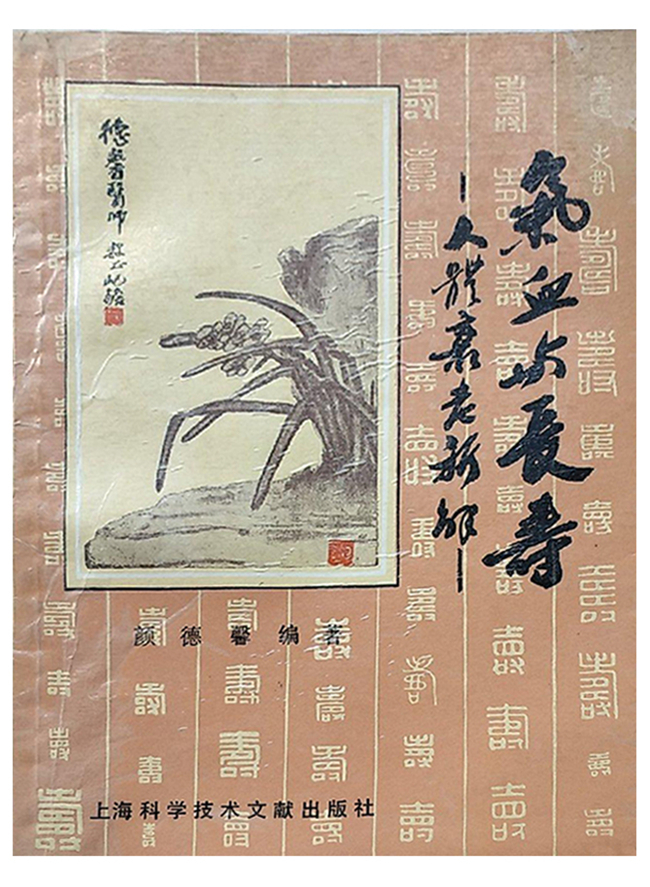 氣血与長壽
—人體衰老新解—
德馨醫師
颜德馨编著
上海科学技术文献出版社